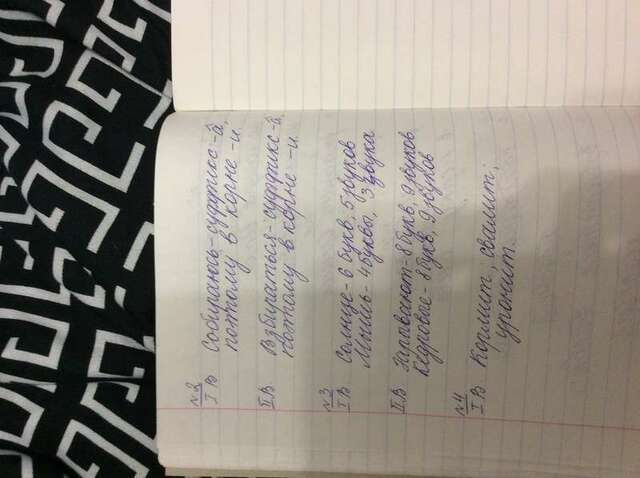 №2
I В Собираюсь - суффикс -а,
поэтому в корне -и.
II В Взбираться - суффикс -а,
поэтому в корне -и.
№3
I В Солнце - 6 букв, 5 звуков
Мышь - 4 буквы, 3 звука
II В Запевают - 8 букв, 9 звуков
Кедровые - 8 букв, 9 звуков
№4
I В Кормит, свалит,
уронит.